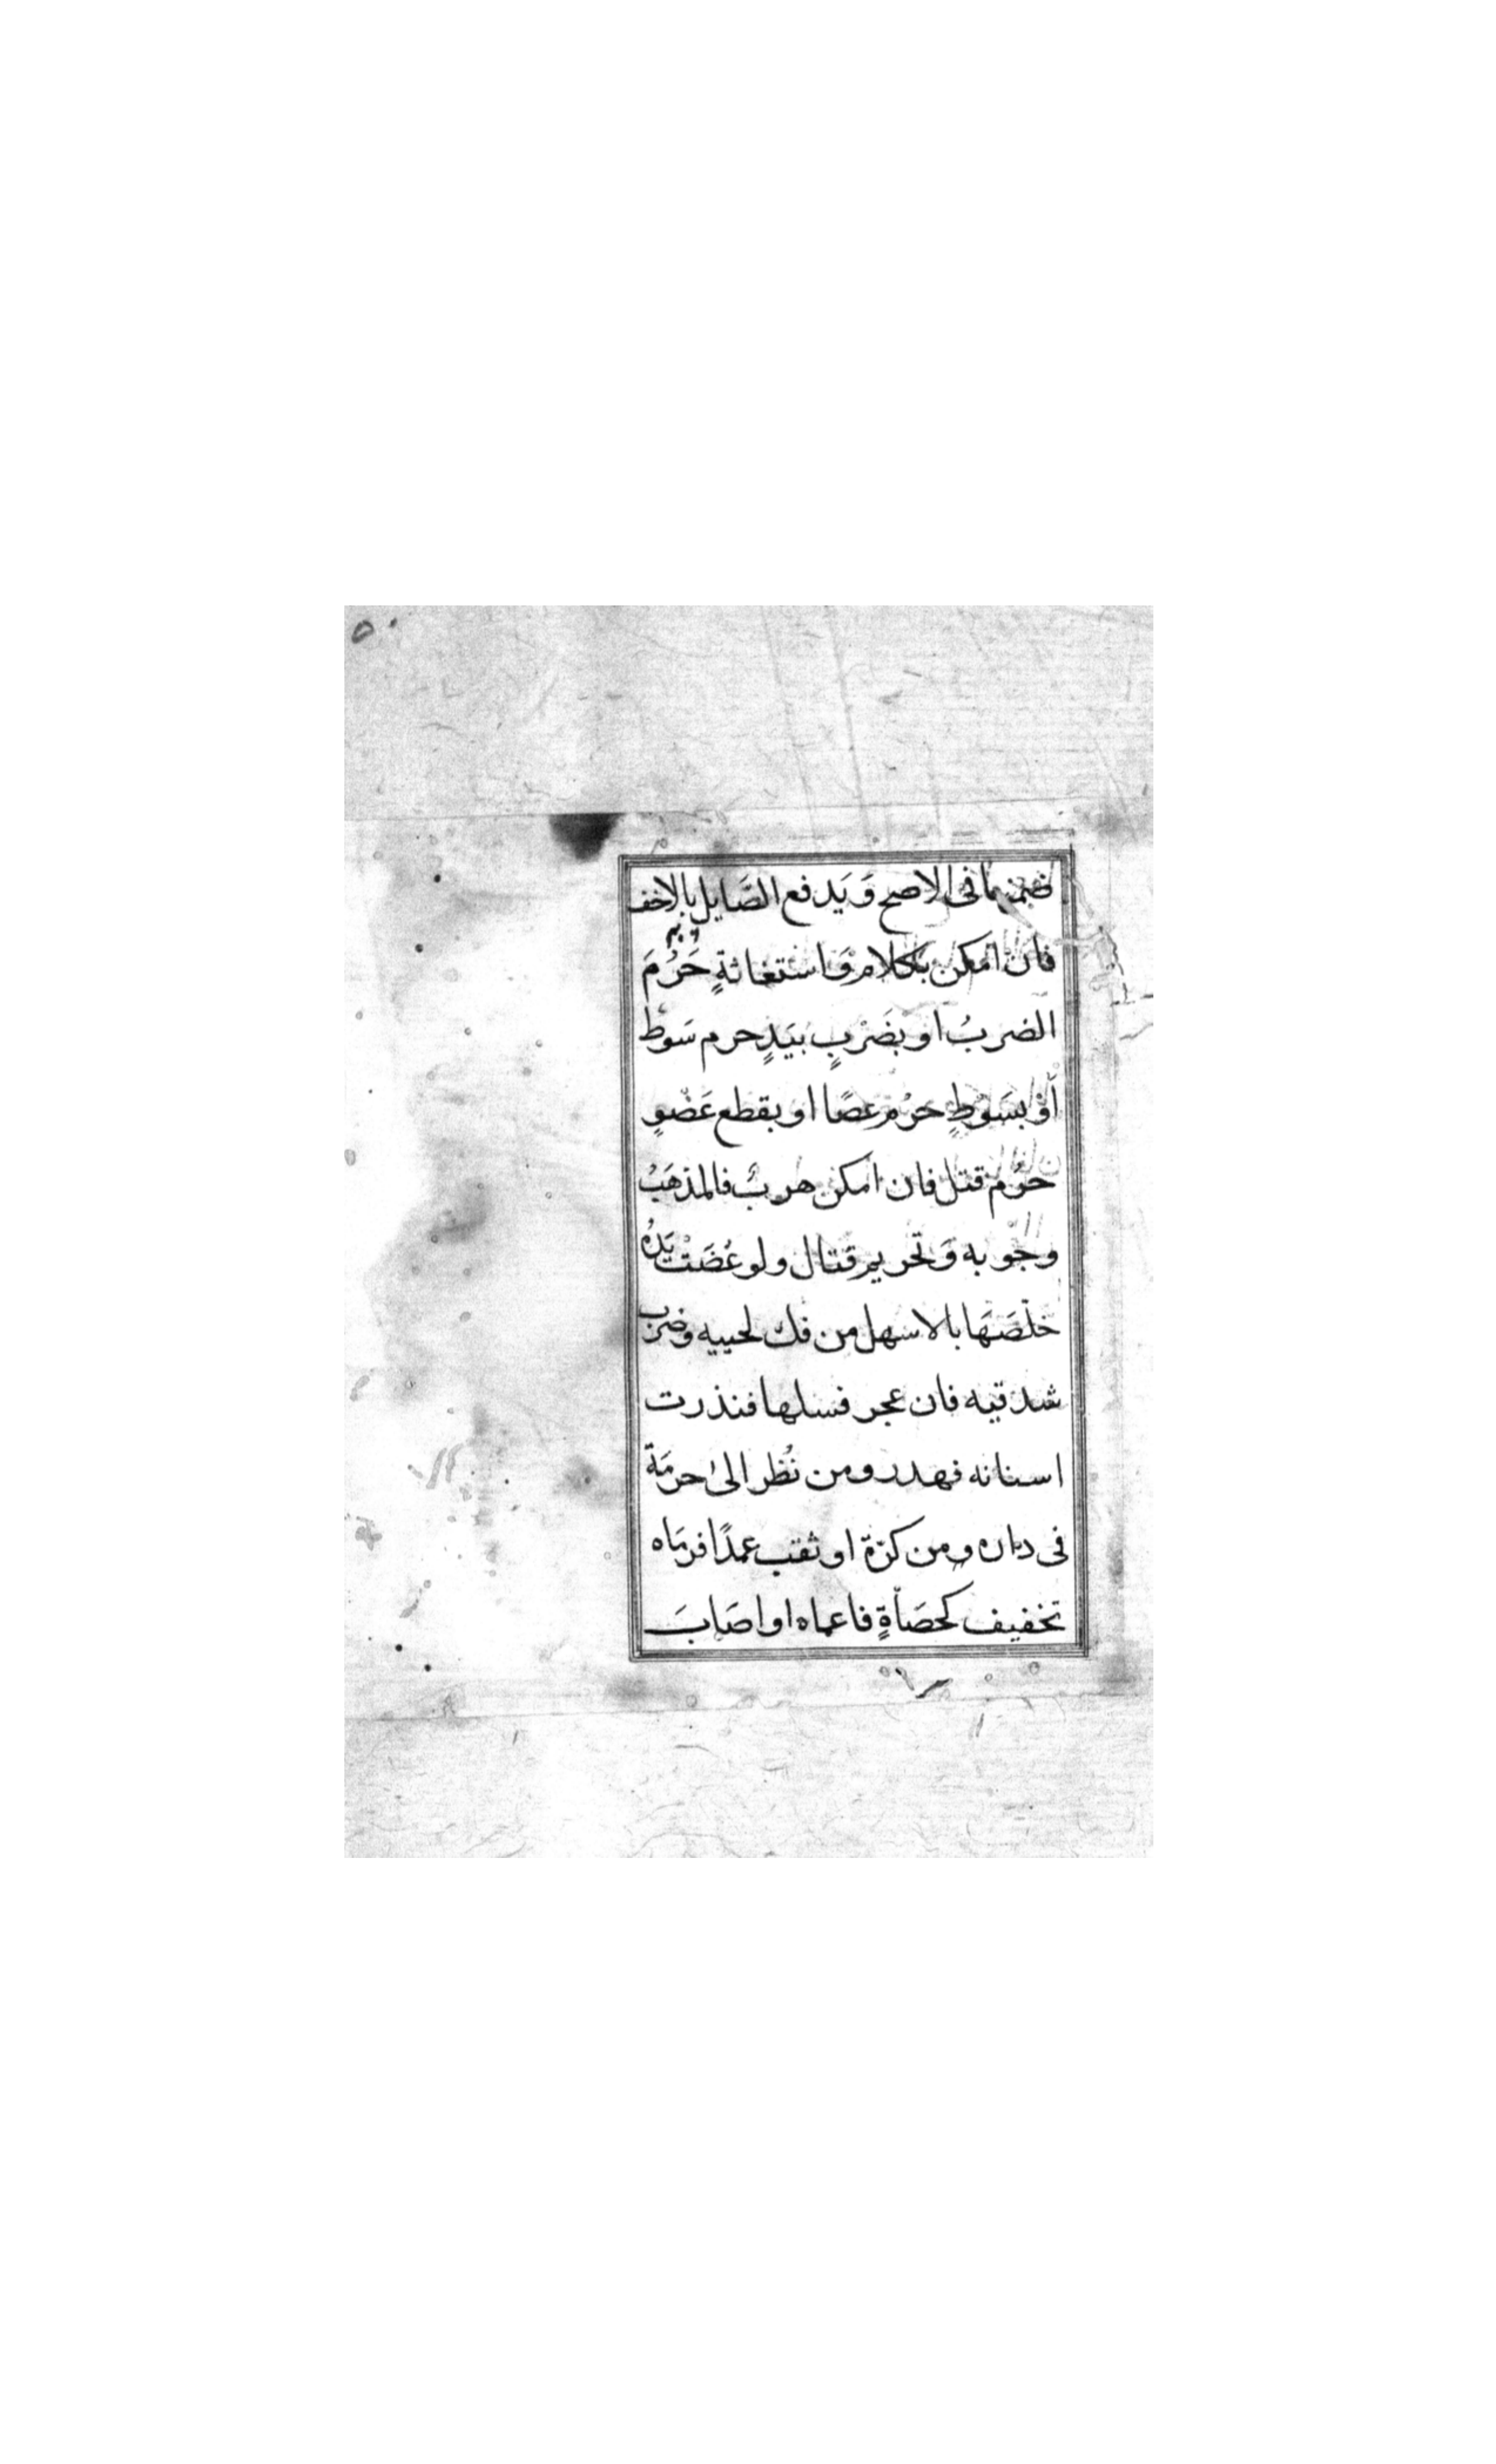 ضمنها فى الاصح وَيَدفع الصَّايل بالاخف
فان امكن بكلام وَاستغاثةٍ حَرُمَ
الضربُ او بضَرْبٍ بيَدٍ حرم سَوط
أوْ بسَوطٍ حرُم عصًا او بقطع عَضْوٍ
حرُم قتل فان امكن هربٌ فالمذهَبُ
وجوبه وَتحريم قتال ولو عُضَتْ يَدُهُ
خلّصَهَا بالاسهل من فك لحييه وضرب
شدقيه فان عجر فسلها فنذرت
اسنانه فهدر ومن نُظر الىٰ حرمَة
فى داره ومن كرّة او ثقب عمدًا فرمَاه
تخفيف كحصَاةٍ فاعماه او اصَابَ